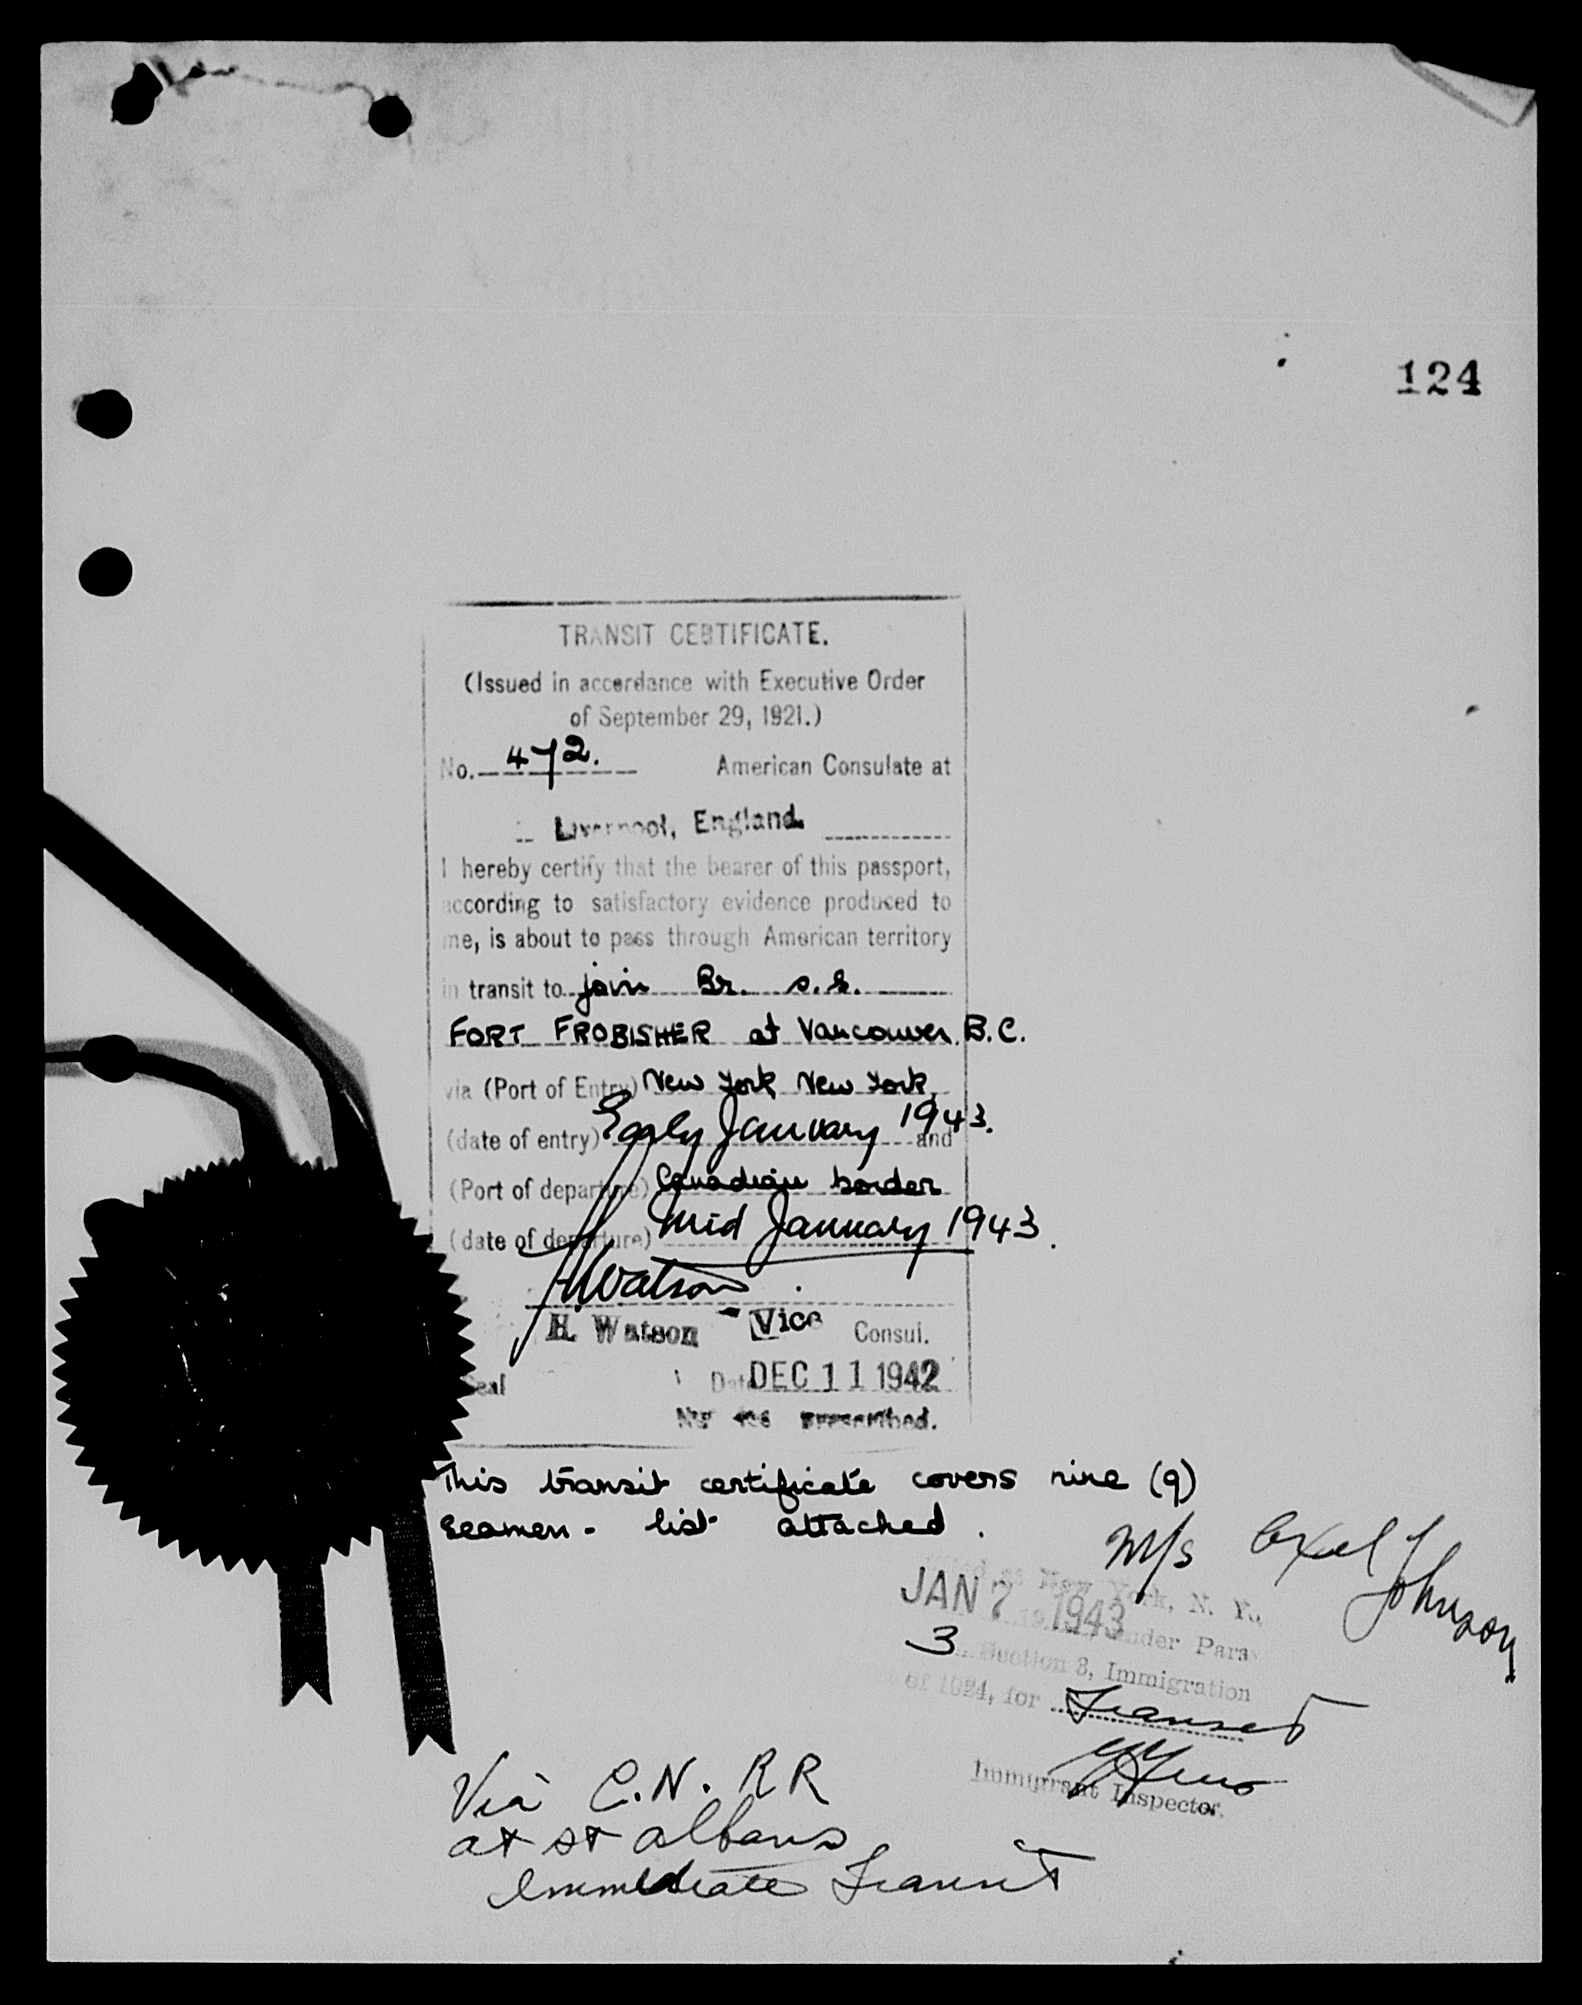 124
TRANSIT CERTIFICATE.
(Issued in accordance with Executive Order
of September 29, 1921.)
No. 472. American Consulate at
Liverpool, England.
I hereby certify that the bearer of this passport,
according to satisfactory evidence produced to
me, is about to pass through American territory
in transit to join Br. s.s.
FORT FROBISHER at Vancouver B.C.
via (Port of Entry) New York, New York,
(date of entry) Early January 1943. and
(Port of departure) Canadian border
(date of departure) Mid January 1943.
H. Watson
H. Watson Vice Consul.
Seal Date DEC 11 1942
No fee prescribed.
This transit certificate covers nine (9)
seamen - list attached.
M/s Axel Johnson
at New York, N. Y.,
JAN 7 1943 under Para
3 Section 3, Immigration
of 1924, for Transit
Immigrant Inspector.
Via C.N. RR
at St Albans
Immediate Transit